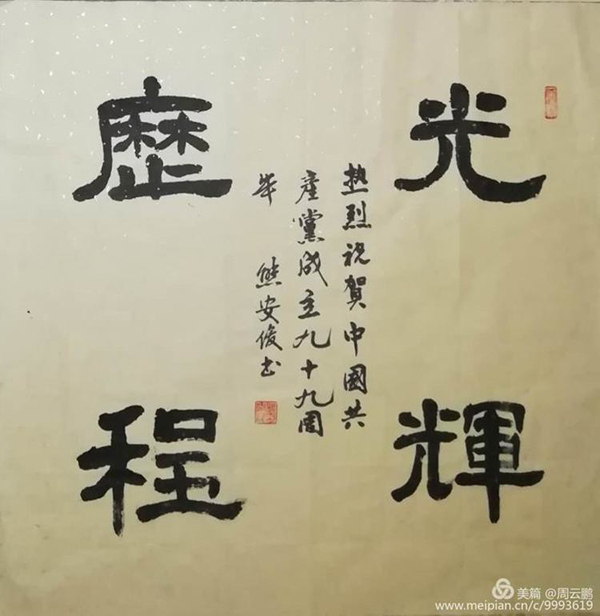 光輝
歷程
热烈祝賀中國共
産黨成立九十九周
年 熊安俊书
美篇 @周云鹏
www.meipian.cn/c/9993619